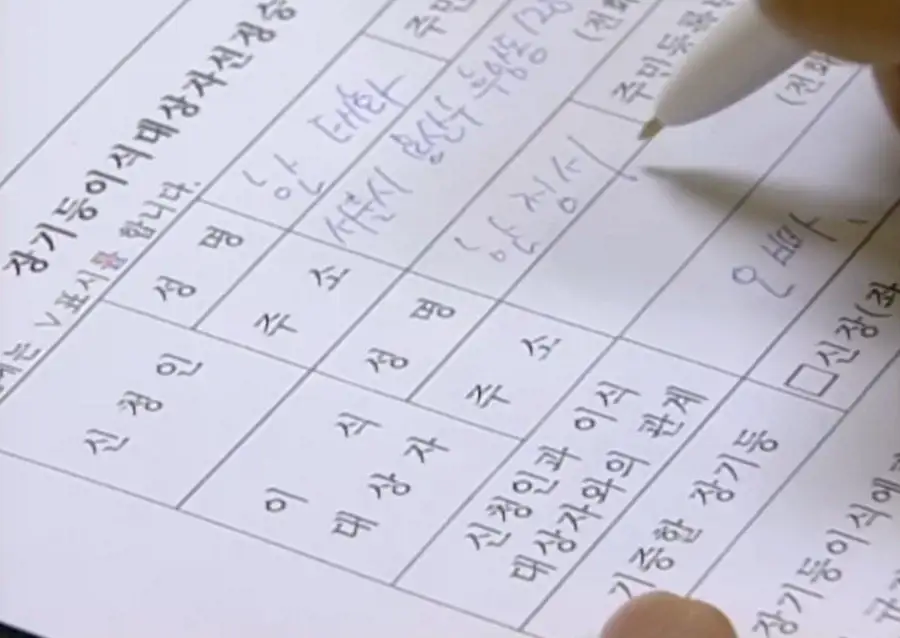 장기등이식대상자선정승
는 V표시를 합니다.
신청인
성명 한 태화 주민
주소 서울시 용산구 (전화
이식
대상자
성명 한 정서 주민등록
주소 (전화
신청인과 이식
대상자와의 관계
오빠
기증할 장기등 □신장(좌
장기등이식에